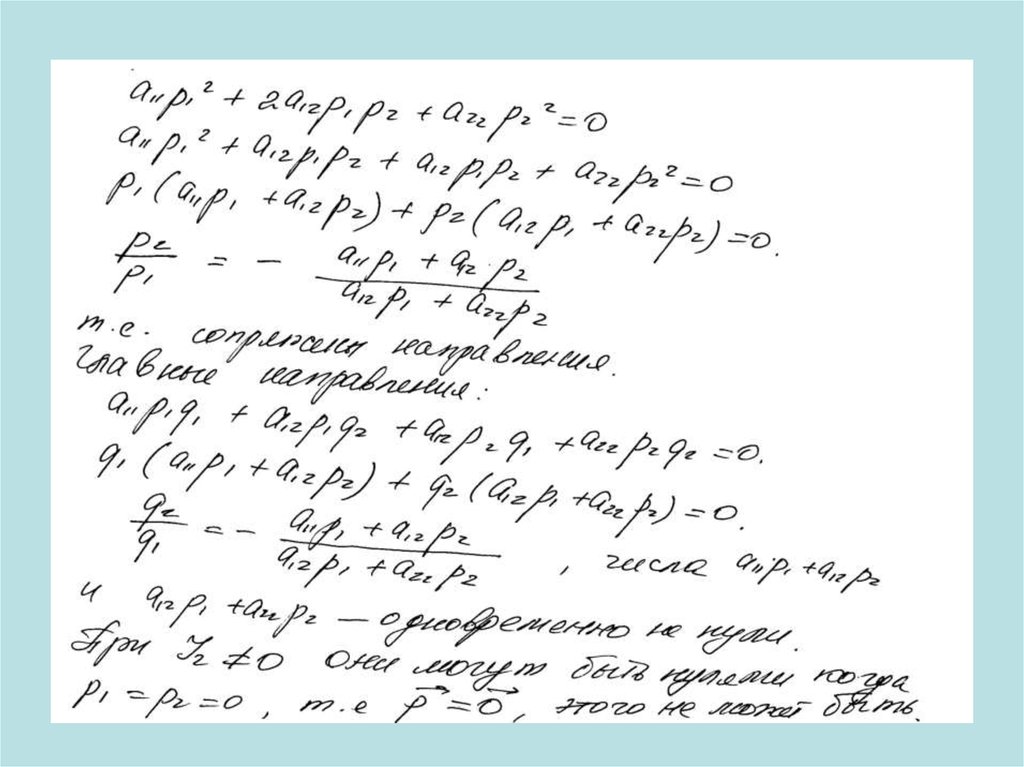 a₁₁p₁² + 2a₁₂p₁p₂ + a₂₂p₂² = 0
a₁₁p₁² + a₁₂p₁p₂ + a₁₂p₁p₂ + a₂₂p₂² = 0
p₁(a₁₁p₁ + a₁₂p₂) + p₂(a₁₂p₁ + a₂₂p₂) = 0.
p₂/p₁ = − (a₁₁p₁ + a₁₂p₂)/(a₁₂p₁ + a₂₂p₂)
т.е. сопряжены направления.
Главные направления:
a₁₁p₁q₁ + a₁₂p₁q₂ + a₁₂p₂q₁ + a₂₂p₂q₂ = 0.
q₁(a₁₁p₁ + a₁₂p₂) + q₂(a₁₂p₁ + a₂₂p₂) = 0.
q₂/q₁ = − (a₁₁p₁ + a₁₂p₂)/(a₁₂p₁ + a₂₂p₂), числа a₁₁p₁ + a₁₂p₂
и a₁₂p₁ + a₂₂p₂ — одновременно не нули.
При I₂ ≠ 0 они могут быть нулями когда
p₁ = p₂ = 0, т.е p⃗ = 0⃗, этого не может быть.